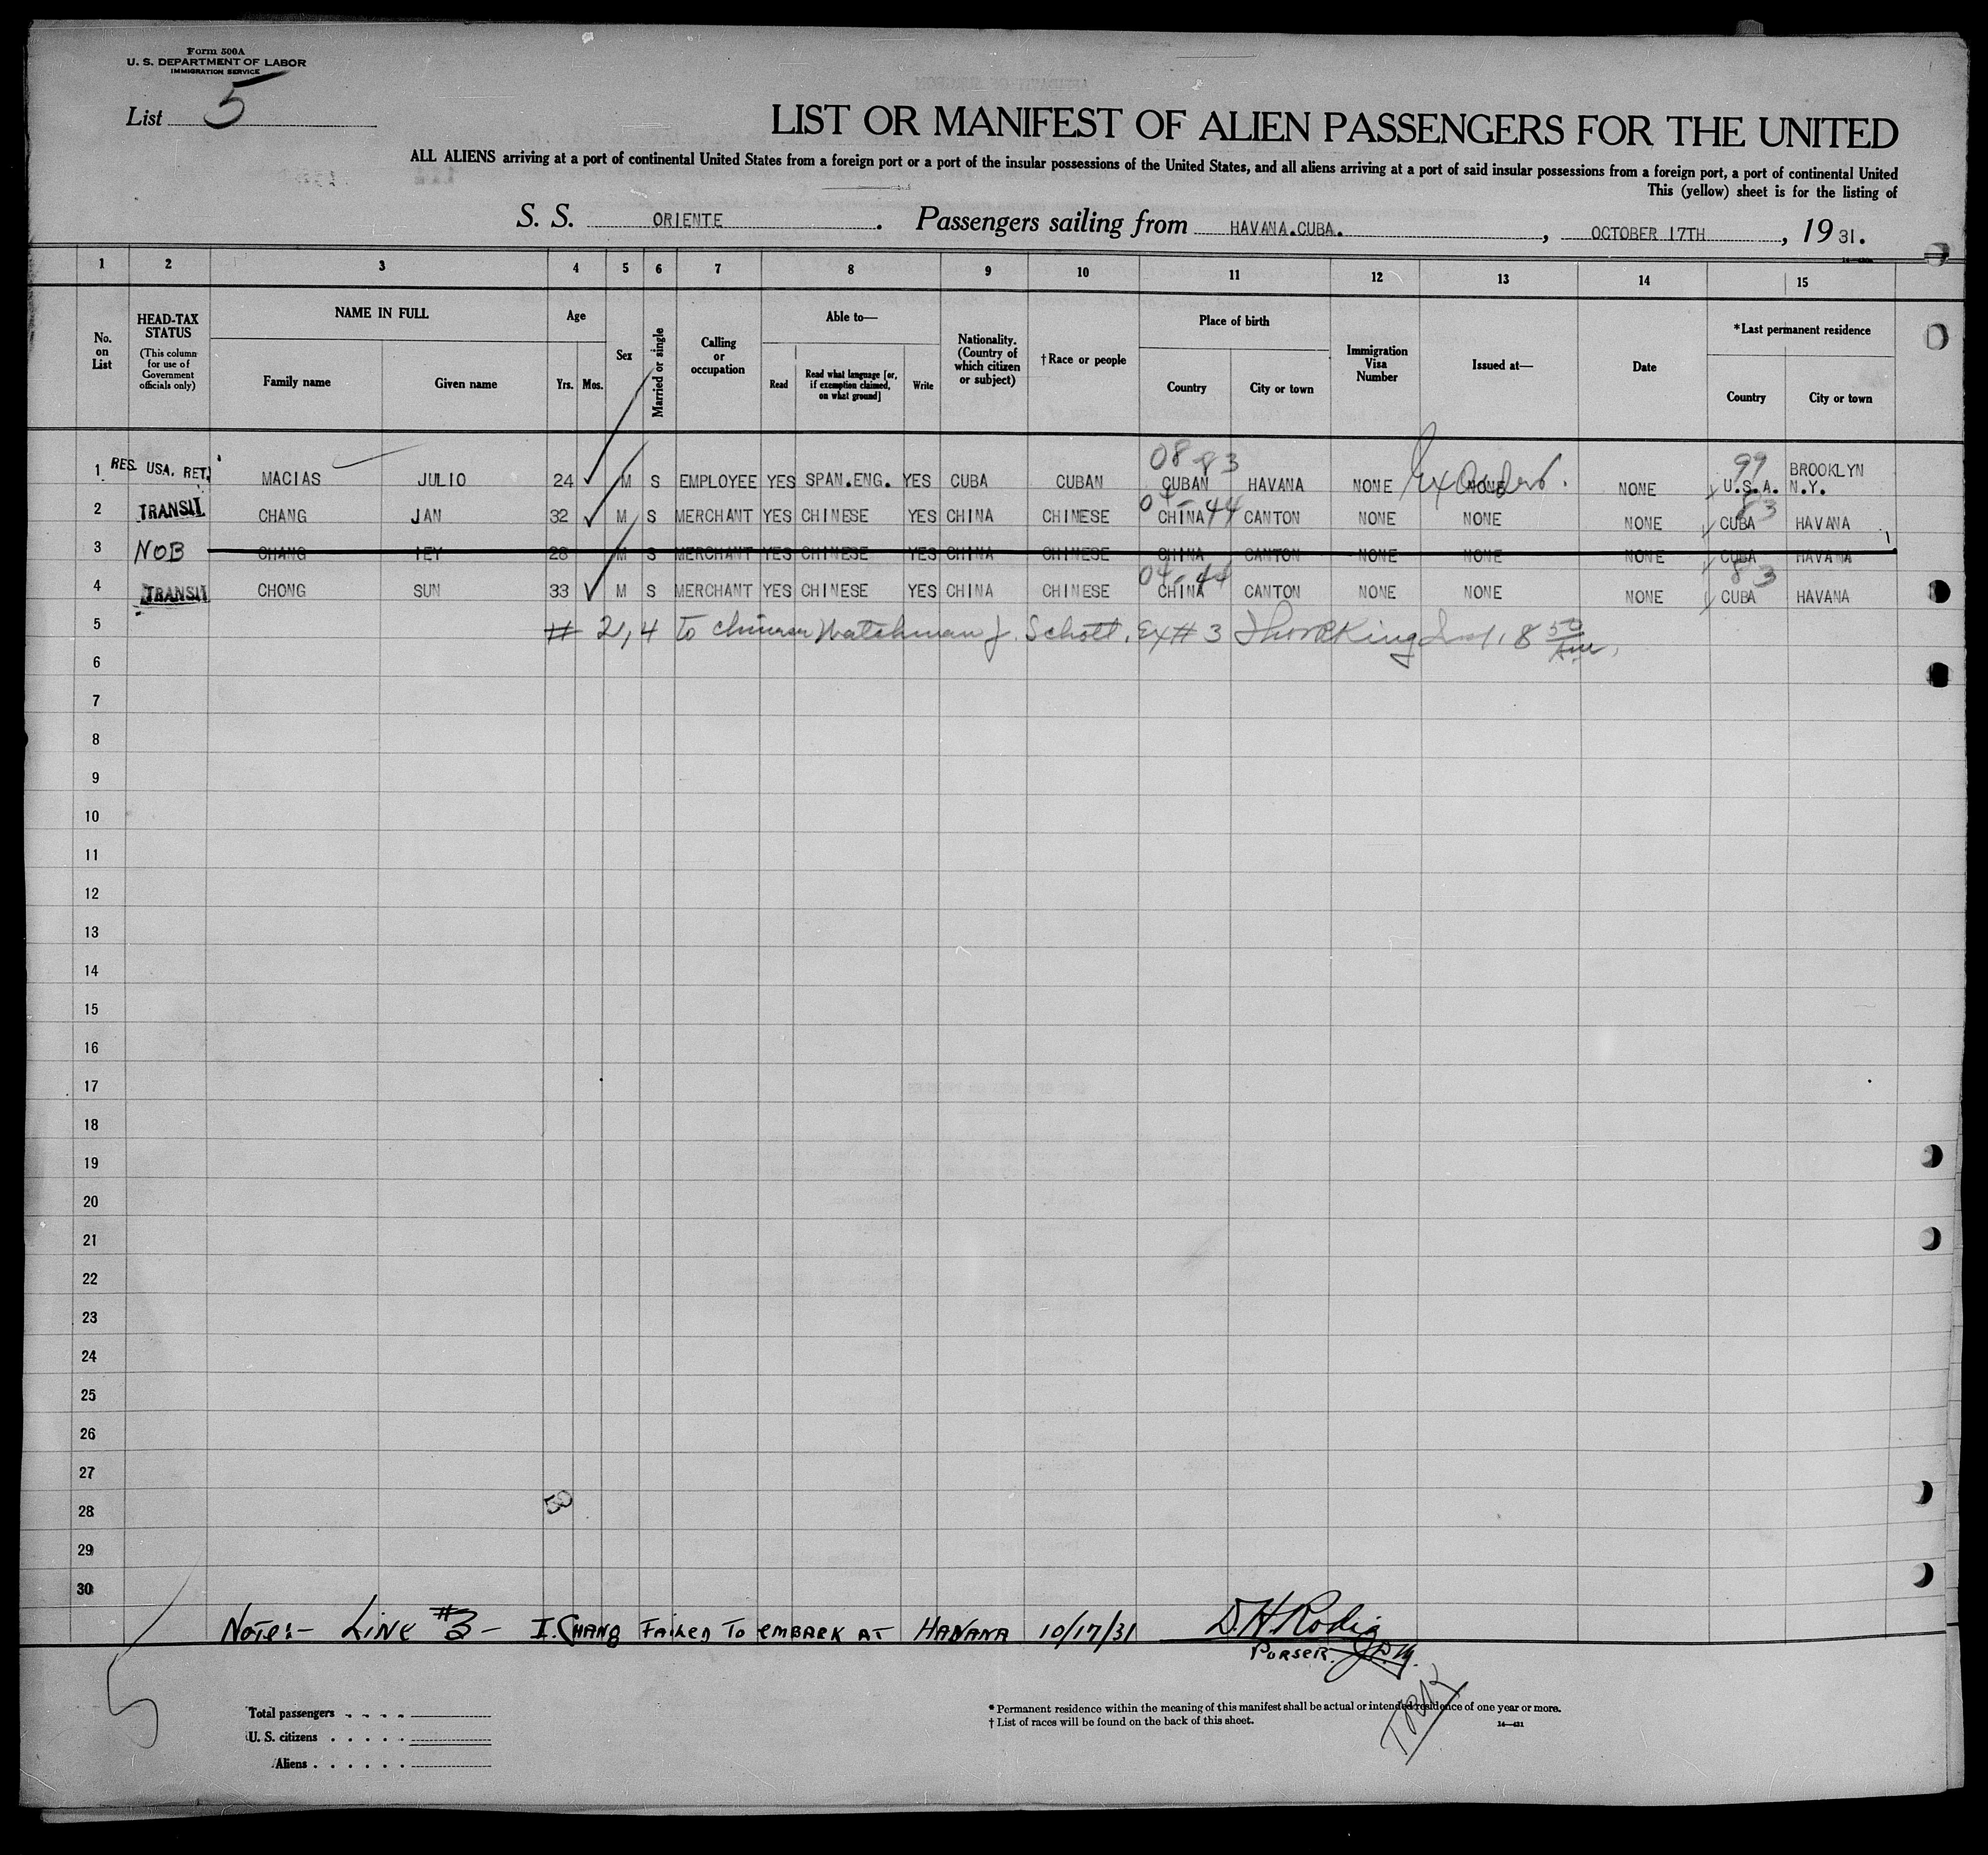 Form 500A
U. S. DEPARTMENT OF LABOR
IMMIGRATION SERVICE
List 5
LIST OR MANIFEST OF ALIEN PASSENGERS FOR THE UNITED
ALL ALIENS arriving at a port of continental United States from a foreign port or a port of the insular possessions of the United States, and all aliens arriving at a port of said insular possessions from a foreign port, a port of continental United
This (yellow) sheet is for the listing of
S. S. ORIENTE. Passengers sailing from HAVANA.CUBA., OCTOBER 17TH, 1931.
1 2 3 4 5 6 7 8 9 10 11 12 13 14 15
No. on List
HEAD-TAX STATUS (This column for use of Government officials only)
NAME IN FULL
Family name Given name
Age
Yrs. Mos.
Sex
Married or single
Calling or occupation
Able to—
Read
Read what language [or, if exemption claimed, on what ground]
Write
Nationality. (Country of which citizen or subject)
†Race or people
Place of birth
Country City or town
Immigration Visa Number
Issued at—
Date
*Last permanent residence
Country City or town
08 83 99
1 RES. USA. RET. MACIAS JULIO 24 M S EMPLOYEE YES SPAN.ENG. YES CUBA CUBAN CUBAN HAVANA NONE NONE NONE U.S.A. BROOKLYN N.Y.
04-44 83
2 TRANSIT CHANG JAN 32 M S MERCHANT YES CHINESE YES CHINA CHINESE CHINA CANTON NONE NONE NONE CUBA HAVANA
3 NOB CHANG IEY 28 M S MERCHANT YES CHINESE YES CHINA CHINESE CHINA CANTON NONE NONE NONE CUBA HAVANA
04-44 83
4 TRANSIT CHONG SUN 33 M S MERCHANT YES CHINESE YES CHINA CHINESE CHINA CANTON NONE NONE NONE CUBA HAVANA
5 # 2, 4 to Chinese Watchman J. Schott, Ex # 3 8 50
6
7
8
9
10
11
12
13
14
15
16
17
18
19
20
21
22
23
24
25
26
27
28
29
30
NOTE:- LINE #3 - I. CHANG FAILED TO EMBARK AT HAVANA 10/17/31
PURSER.
5
Total passengers
U. S. citizens
Aliens
* Permanent residence within the meaning of this manifest shall be actual or intended residence of one year or more.
† List of races will be found on the back of this sheet.
14—431